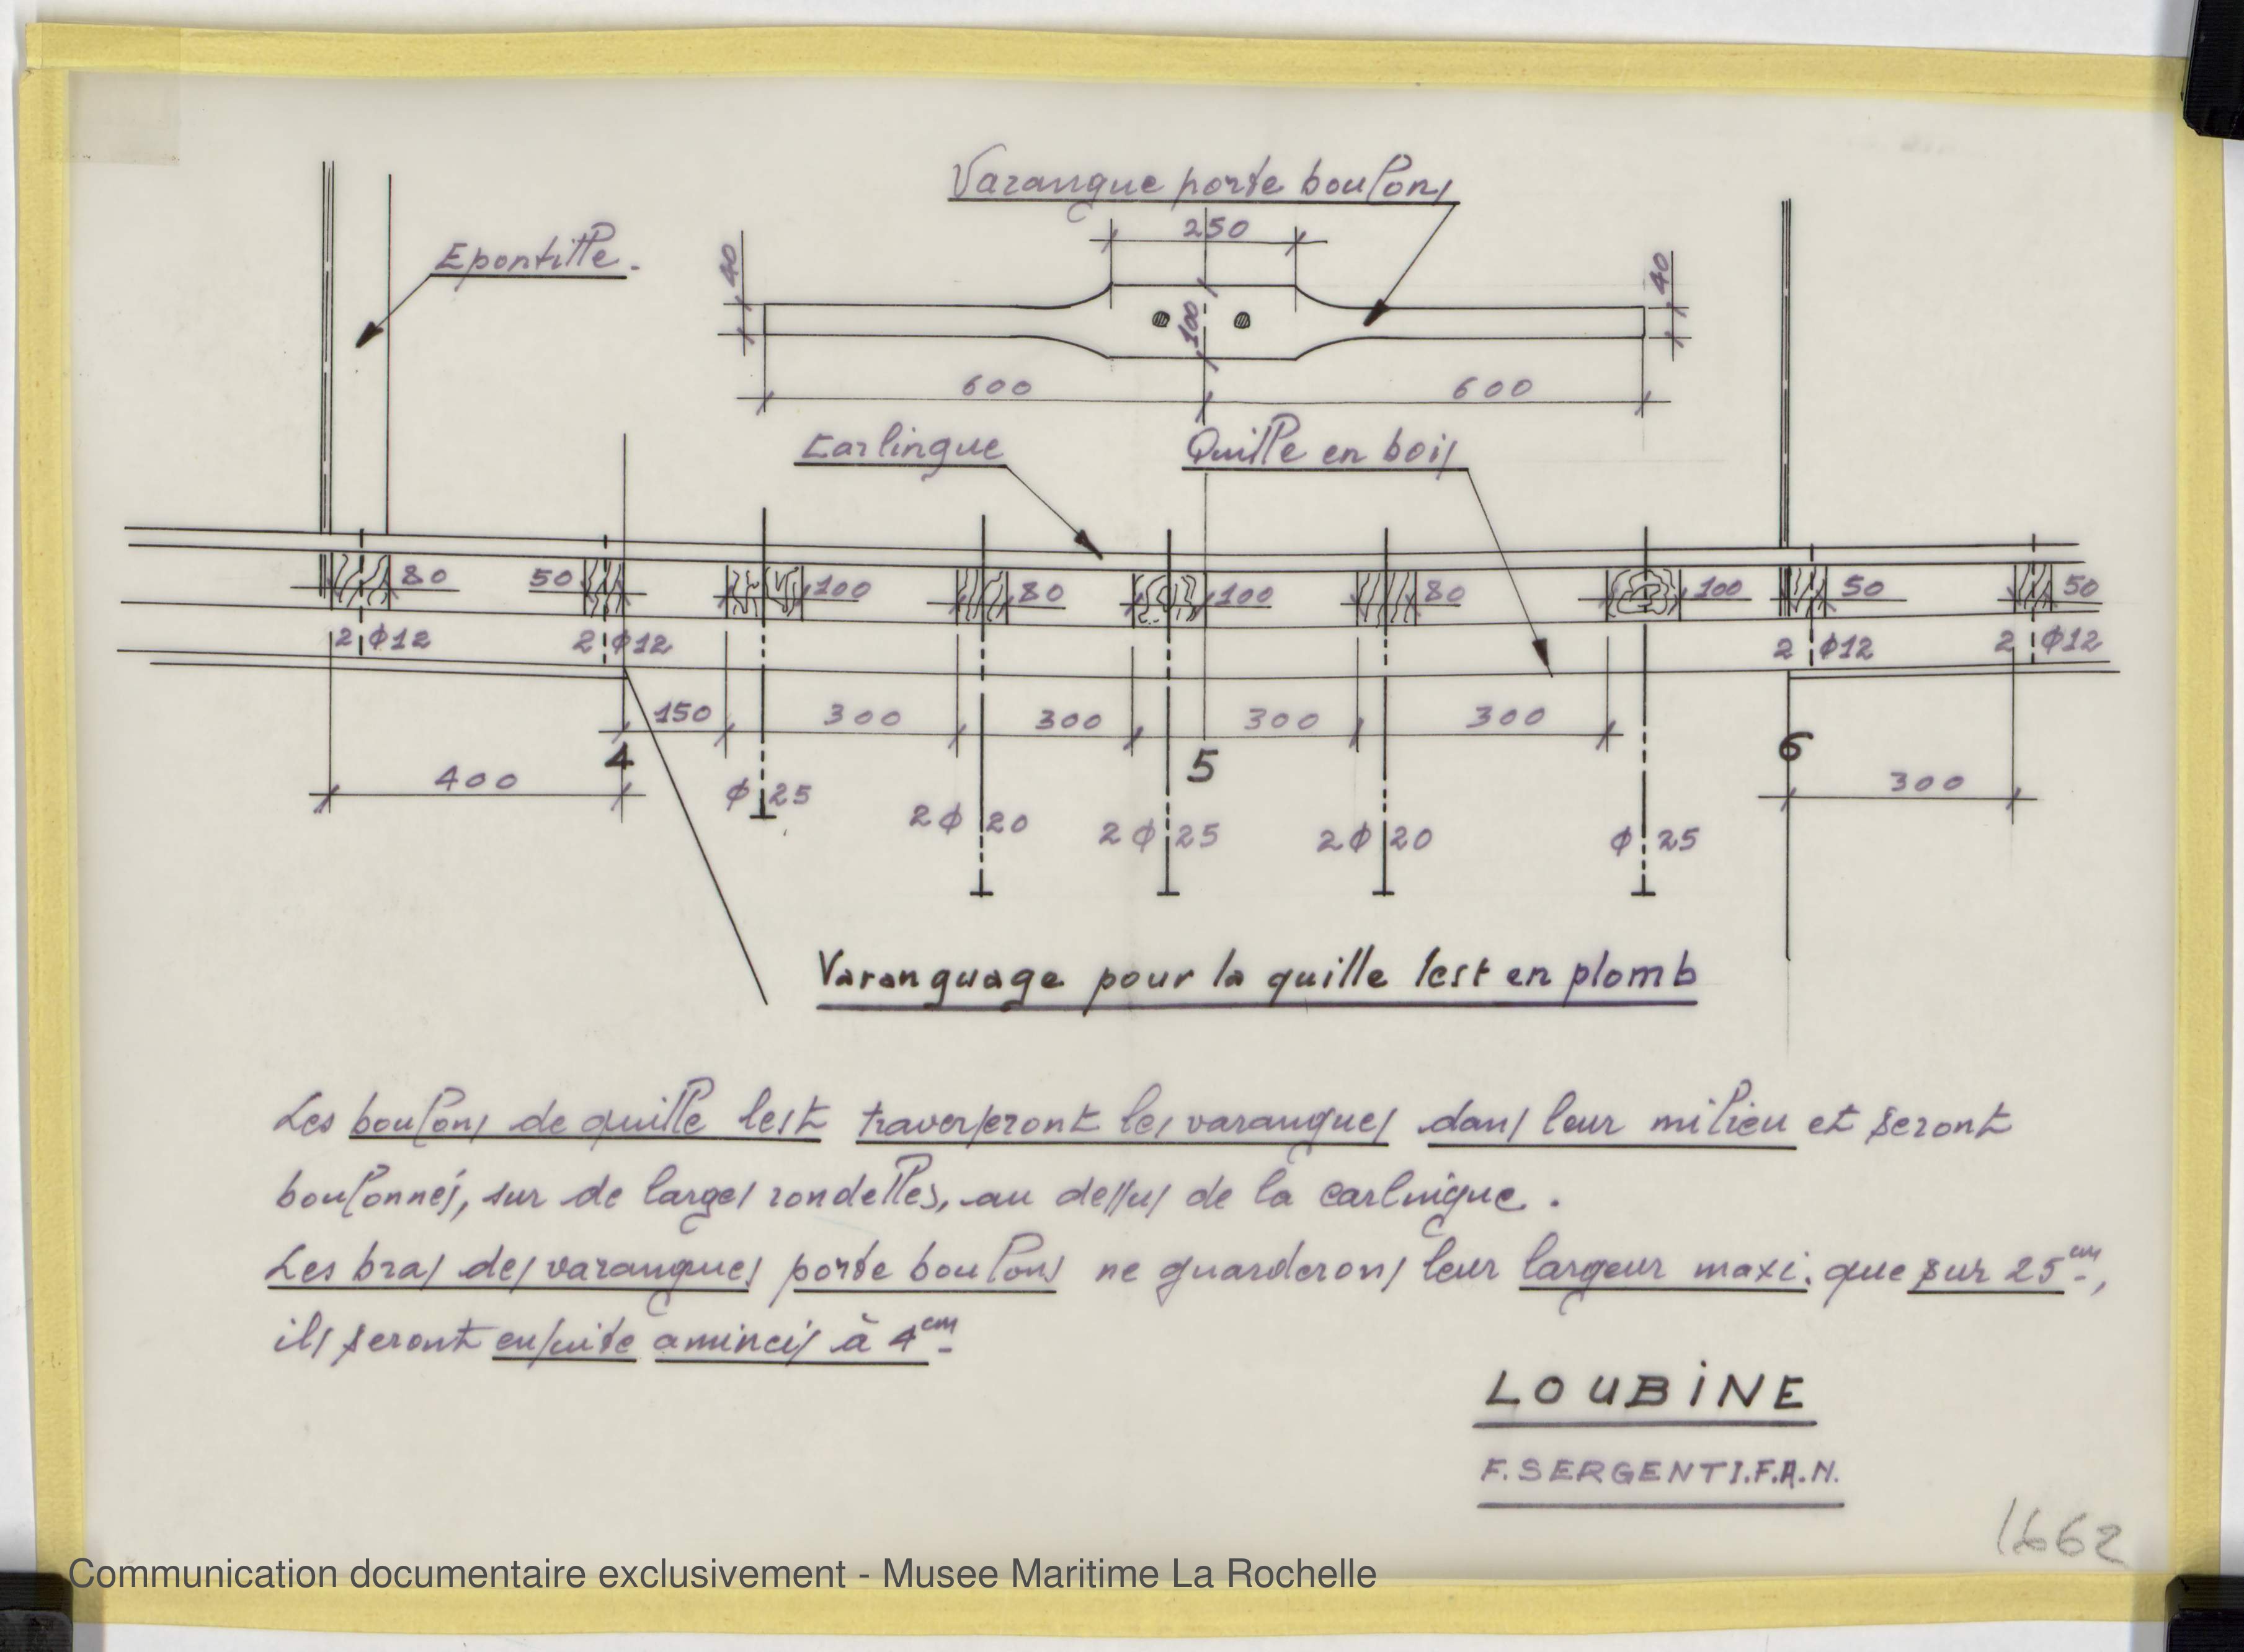 Varangue porte boulons
Epontille.
250
40
40
100
600
600
Carlingue
Quille en bois
80
50
100
80
100
80
100
50
50
2 φ12
2 φ12
2 φ12
2 φ12
150
300
300
300
300
4
5
6
400
300
φ 25
2φ 20
2φ 25
2φ 20
φ 25
Varanguage pour la quille lest en plomb
Les boulons de quille lest traverseront les varangues dans leur milieu et seront
boulonnés, sur de larges rondelles, au dessus de la carlingue.
Les bras des varangues porte boulons ne guarderons leur largeur maxi. que sur 25cm,
ils seront ensuite amincis à 4cm
LOUBiNE
F. SERGENT I.F.A.N.
1662
Communication documentaire exclusivement - Musee Maritime La Rochelle